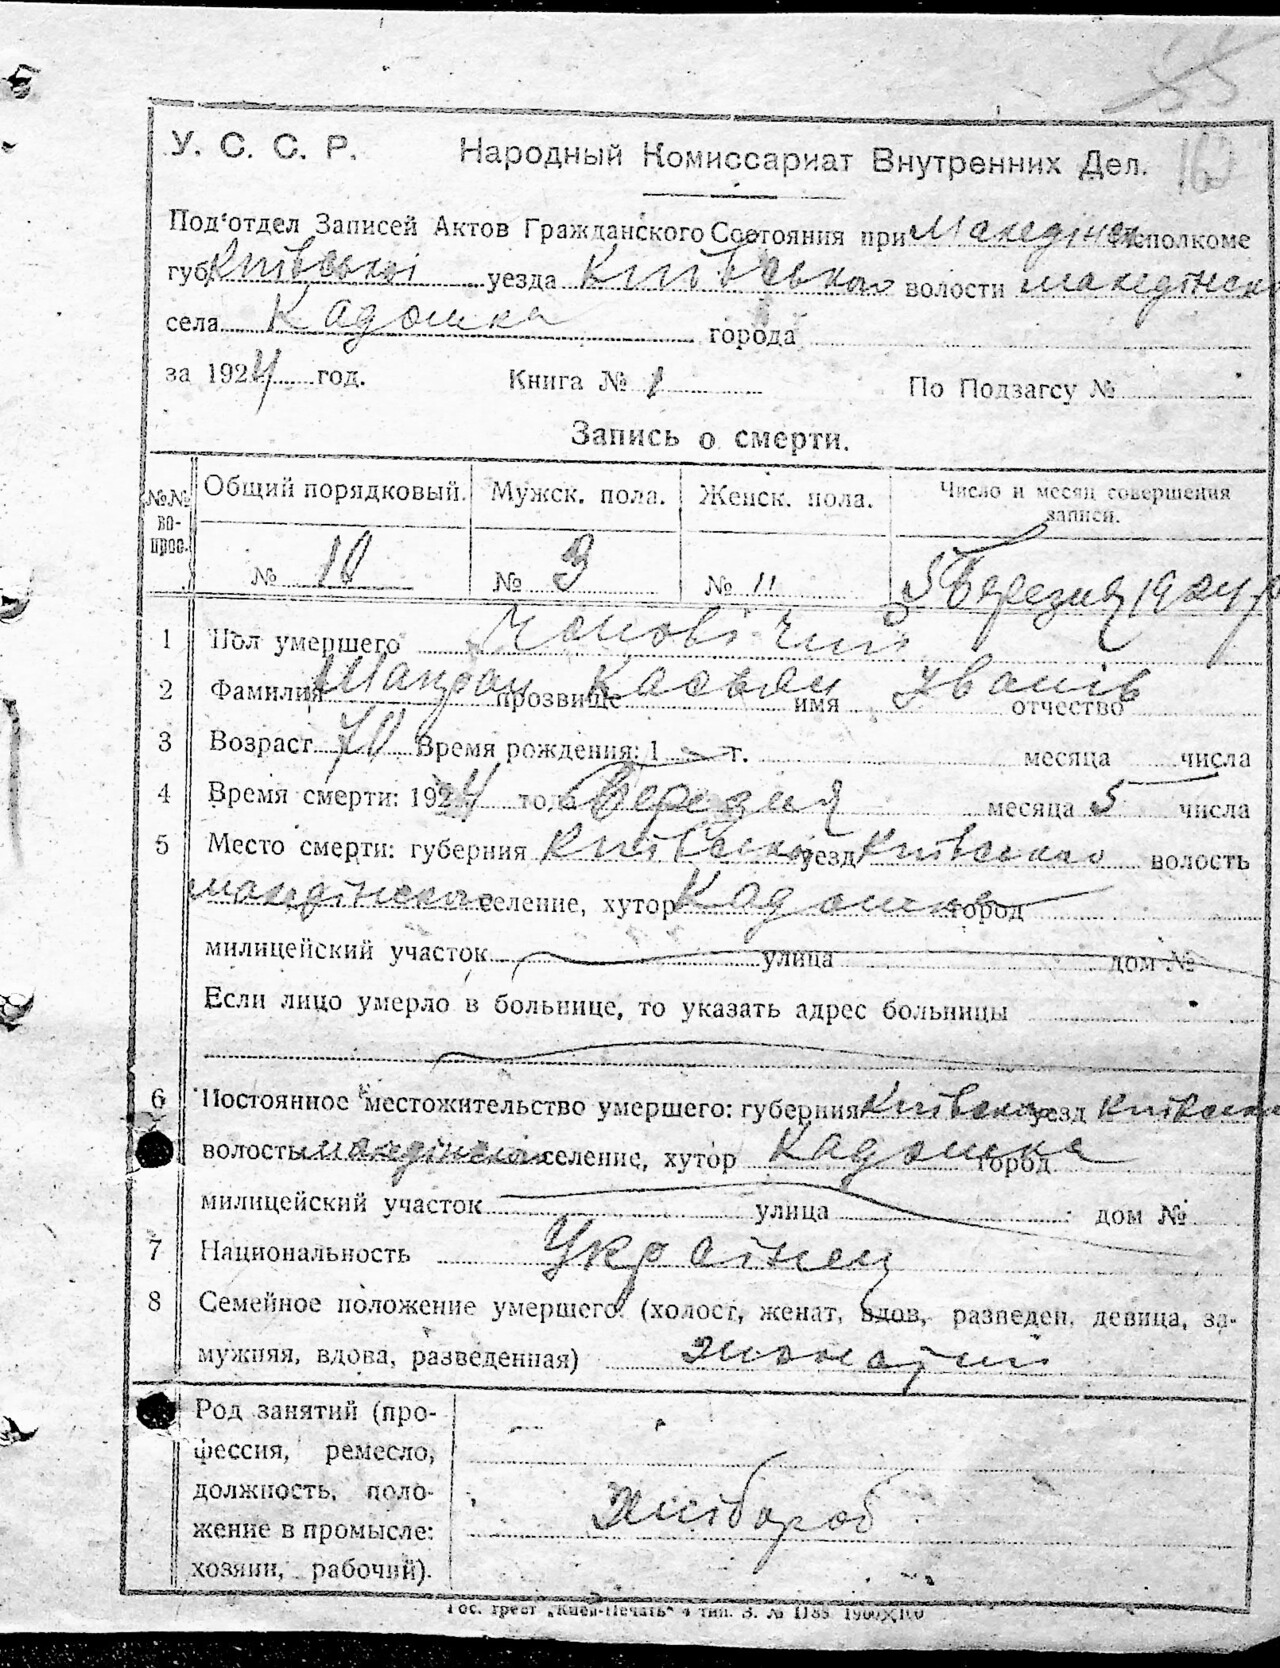 55
162
У. С. С. Р. Народный Комиссариат Внутренних Дел.
Под'отдел Записей Актов Гражданского Состояния при Македінск исполкоме
губ. Київської уезда Київського волости македінско
села Кадомка города
за 1924 год. Книга № 1 По Подзагсу №
Запись о смерти.
№№ вопрос. Общий порядковый. Мужск. пола. Женск. пола. Число и месяц совершения записи.
№ 10 № 3 № " 5 Березня 1924 р
1 Пол умершего Чоловічий
2 Фамилия прозвище Касьян имя Іванів отчество
3 Возраст 70 Время рождения: 1 г. месяца числа
4 Время смерти: 1924 года Березня месяца 5 числа
5 Место смерти: губерния Київсько уезд Київского волость
македінская селение, хутор Кадомка город
милицейский участок улица дом №
Если лицо умерло в больнице, то указать адрес больницы
6 Постоянное местожительство умершего: губерния Київско уезд Київско
волость македінская селение, хутор Кадомка город
милицейский участок улица дом №
7 Национальность Українец
8 Семейное положение умершего: (холост, женат, вдов, разведен, девица, за-
мужняя, вдова, разведенная) жонатий
Род занятий (про-
фессия, ремесло,
должность, поло- Хлібороб
жение в промысле:
хозяин, рабочий).
Гос. трест „Киев-Печать" 4 тип. З. № 1185